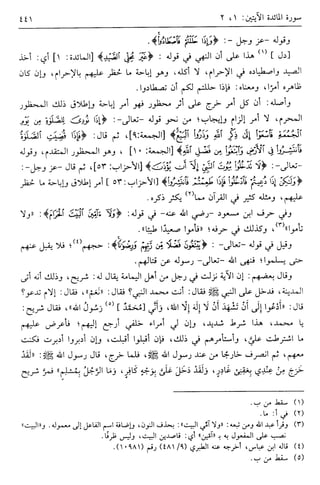 سورة المائدة الآيتين: ١، ٢
٤٤١
وقوله -عز وجل-: ﴿وَإِذَا حَلَلْتُمْ فَاصْطَادُوا﴾.
[دل] (١) هذا على أن النهي في قوله: ﴿غَيْرَ مُحِلِّي الصَّيْدِ﴾ [المائدة: ١] أي: أخذ
الصيد واصطياده في الإحرام، لا أكله، وهو إباحة ما حُظر عليهم بالإحرام، وإن كان
ظاهره أمرًا، ومعناه: فإذا حللتم لكم أن تصطادوا.
وأصله: أن كل أمر خرج على أثر محظور فهو أمر إباحة وإطلاق ذلك المحظور
المحرم، لا أمر إلزام وإيجاب؛ من نحو قوله -تعالى-: ﴿إِذَا نُودِيَ لِلصَّلَاةِ مِنْ يَوْمِ
الْجُمُعَةِ فَاسْعَوْا إِلَى ذِكْرِ اللَّهِ وَذَرُوا الْبَيْعَ﴾ [الجمعة: ٩]، ثم قال: ﴿فَإِذَا قُضِيَتِ الصَّلَاةُ
فَانْتَشِرُوا فِي الْأَرْضِ وَابْتَغُوا مِنْ فَضْلِ اللَّهِ﴾ [الجمعة: ١٠]، وهو المحظور المتقدم، وقوله
-تعالى-: ﴿لَا تَدْخُلُوا بُيُوتَ النَّبِيِّ إِلَّا أَنْ يُؤْذَنَ﴾ [الأحزاب: ٥٣]، ثم قال -عز وجل-:
﴿وَلَكِنْ إِذَا دُعِيتُمْ فَادْخُلُوا فَإِذَا طَعِمْتُمْ فَانْتَشِرُوا﴾ [الأحزاب: ٥٣] أمر إطلاق وإباحة ما حُظر
عليهم، ومثله كثير في القرآن مما (٢) يكثر ذكره.
وفي حرف ابن مسعود -رضي الله عنه- في قوله: ﴿وَلَا آمِّينَ الْبَيْتَ الْحَرَامَ﴾: «ولا
تأموا» (٣)، وكذلك في حرفه: «فأموا صعيدًا طيبًا».
وقيل في قوله -تعالى-: ﴿يَبْتَغُونَ فَضْلًا مِنْ رَبِّهِمْ وَرِضْوَانًا﴾: حجهم (٤)؛ فلا يقبل عنهم
حتى يسلموا؛ فنهى الله -تعالى- رسوله عن قتالهم.
وقال بعضهم: إن الآية نزلت في رجل من أهل اليمامة يقال له: شريح، وذلك أنه أتى
المدينة، فدخل على النبي ﷺ فقال: أنت محمد النبي؟ فقال: «نَعَمْ»، فقال: إلام تدعو؟
قال: «أَدْعُو إِلَى أَنْ تَشْهَدَ أَنْ لَا إِلَهَ إِلَّا اللهُ، وَأَنِّي [مُحَمَّدٌ] (٥) رَسُولُ اللهِ»، فقال شريح:
يا محمد، هذا شرط شديد، وإن لي أمراء خلفي أرجع إليهم؛ فأعرض عليهم
ما اشترطت عليَّ، وأستأمرهم في ذلك، فإن أقبلوا أقبلت، وإن أدبروا أدبرت فكنت
معهم، ثم انصرف خارجًا من عند رسول الله ﷺ، فلما خرج، قال رسول الله ﷺ: «لَقَدْ
خَرَجَ مِنْ عِنْدِي بِعَقِبَيْ غَادِرٍ، وَلَقَدْ دَخَلَ عَلَيَّ بِوَجْهِ كَافِرٍ، وَمَا الرَّجُلُ بِمُسْلِمٍ» فمرَّ شريح
(١) سقط من ب.
(٢) في أ: ما.
(٣) وقرأ عبد الله ومن تبعه: «ولا آمِّي البيت»: بحذف النون، وإضافة اسم الفاعل إلى معموله. و«البيت»
نصب على المفعول به بـ «آمِّين» أي: قاصدين البيت، وليس ظرفًا.
(٤) قاله ابن عباس، أخرجه عنه الطبري (٤٨١/٩) رقم (١٠٩٨١).
(٥) سقط من ب.